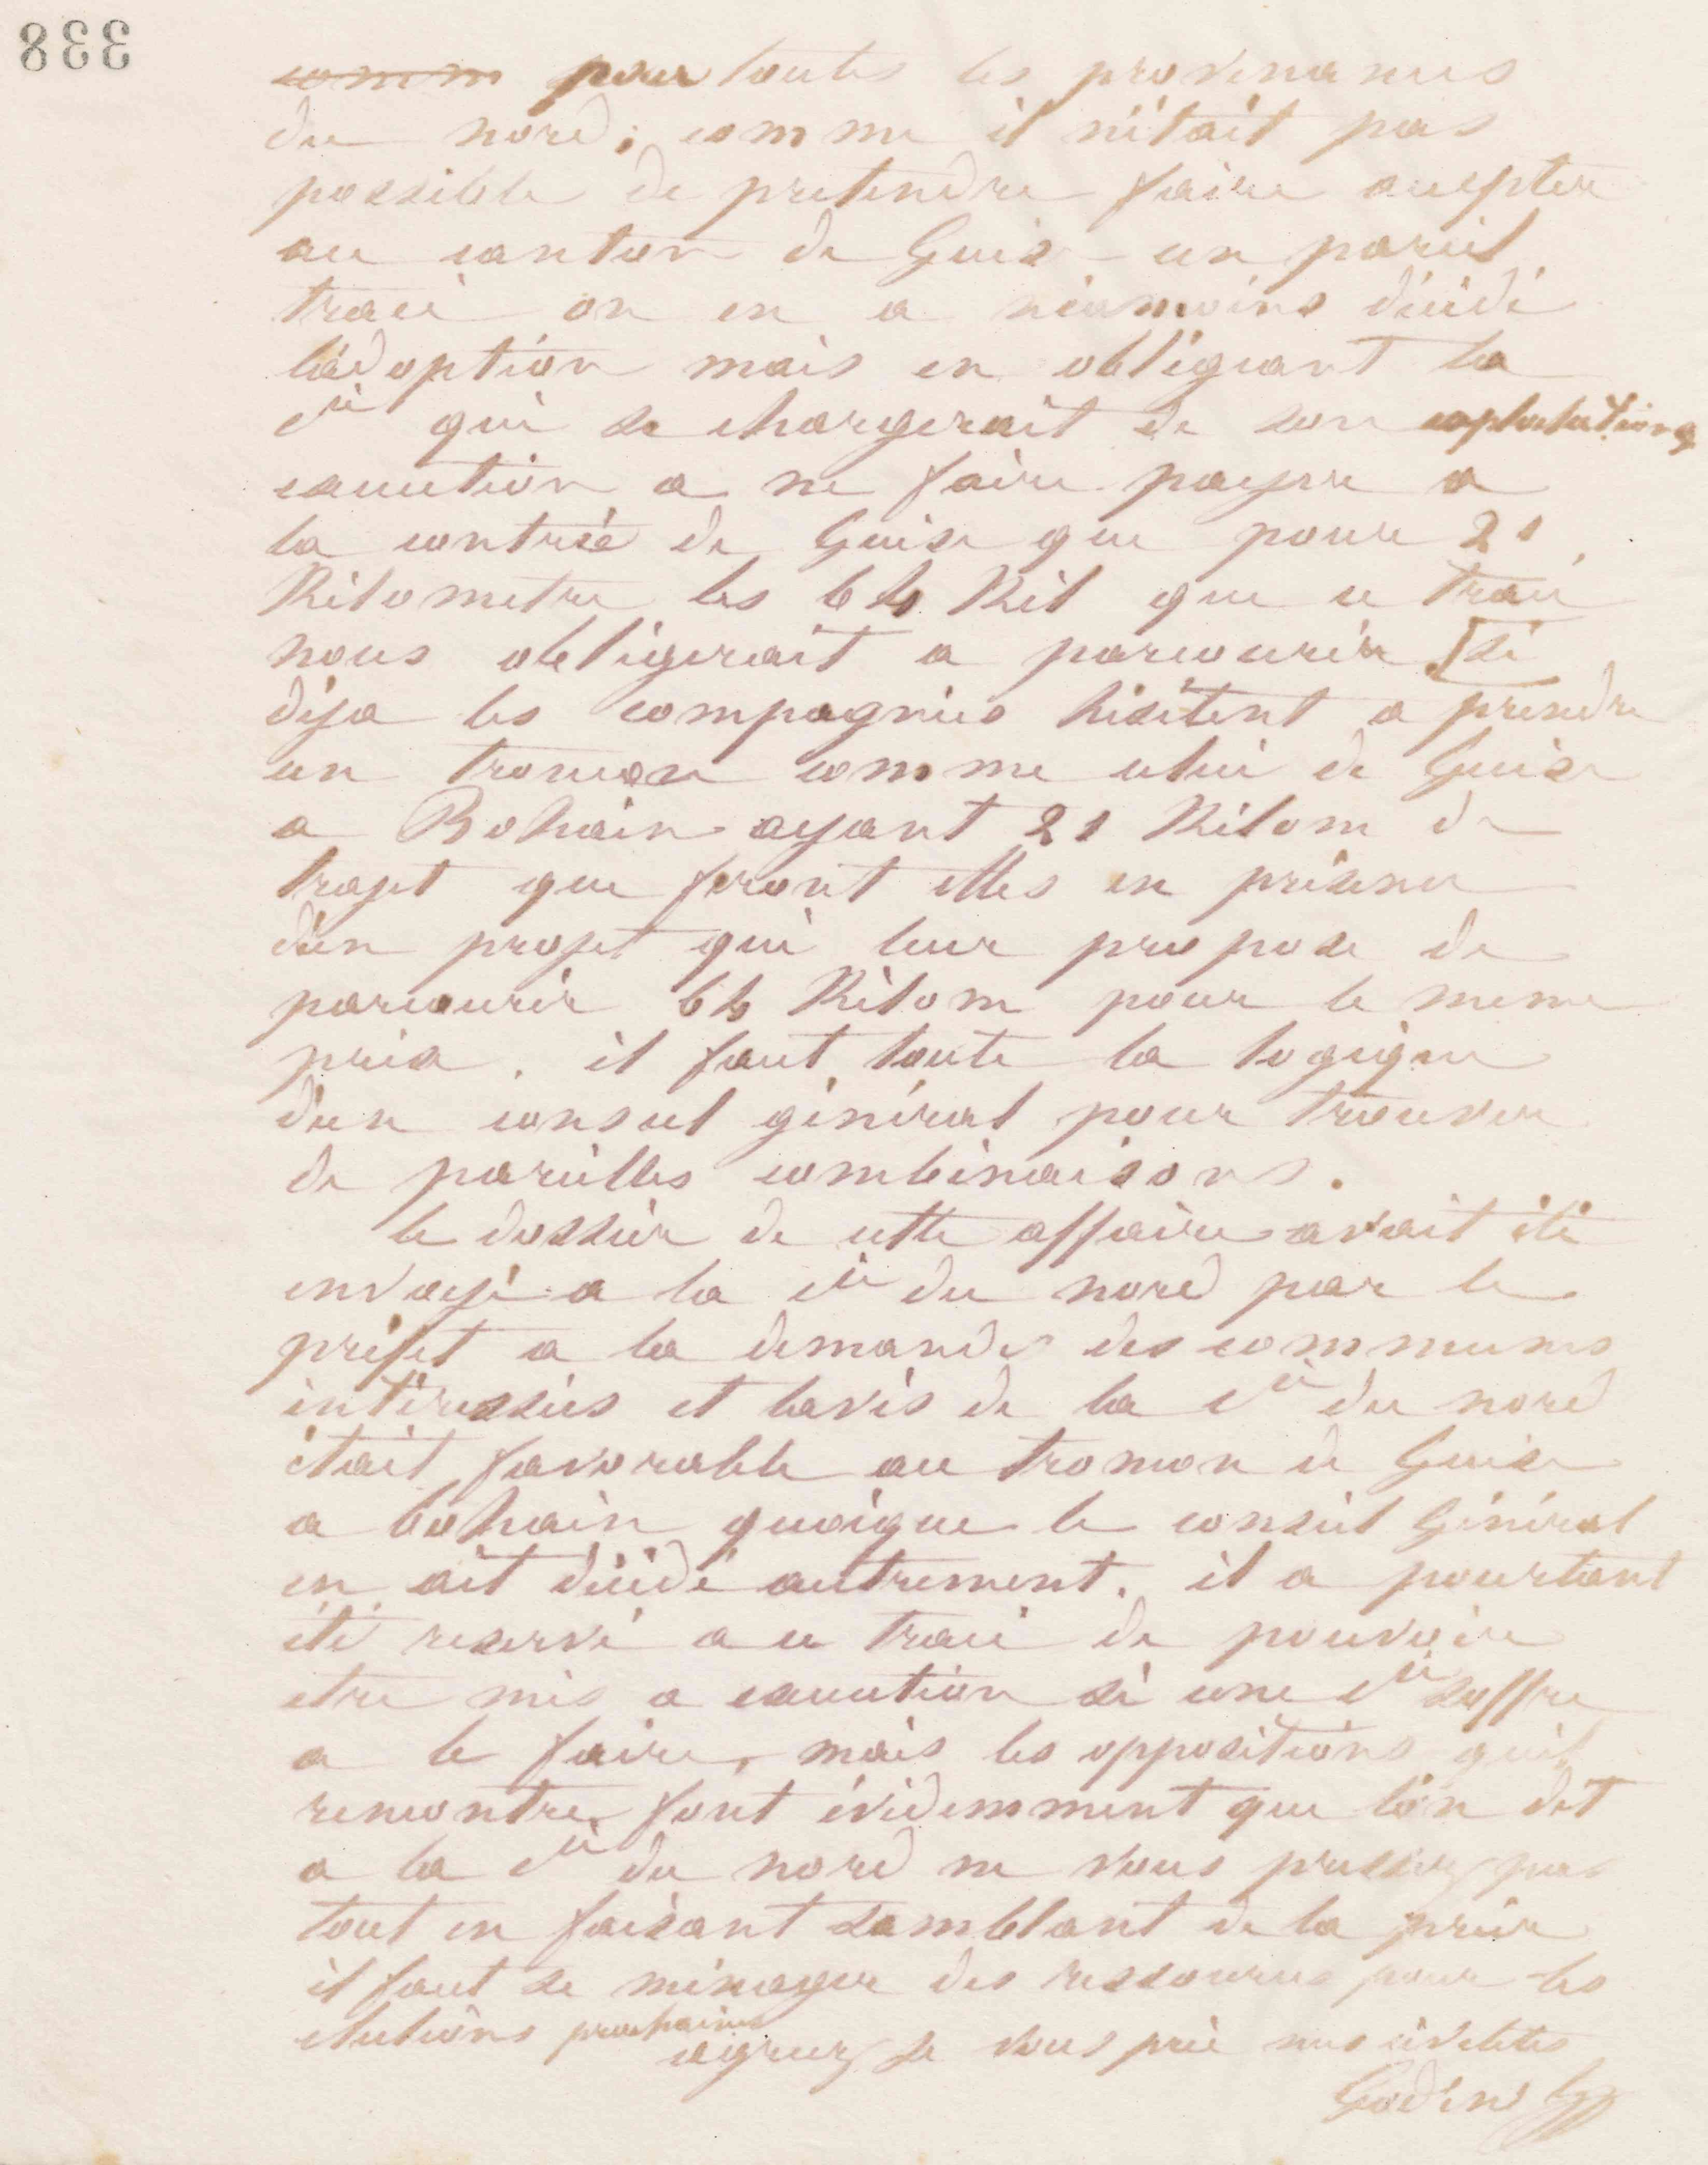 338
comm pour toutes les provenances
du nord; comme il n'était pas
possible de pretendre faire accepter
au canton de Guise un pareil
tracé on en a néanmoins décidé
l'adoption mais en obligeant la
Cie qui se chargerait de son exploitation
execution a ne faire payer a
la contrée de Guise que pour 21
Kilometre les 64 Kil que ce tracé
nous obligerait a parcourir [si
déja les compagnies hésitent a prendre
un troncon comme celui de Guise
a Bohain ayant 21 Kilom de
trajet que feront elles en présence
d'un projet qui leur propose de
parcourir 64 Kilom pour le meme
prix. il faut toute la logique
d'un conseil général pour trouver
de pareilles combinaisons.
le dossier de cette affaire avait été
envoyé a la Cie du nord par le
préfet a la demande des communes
intéressées et lavis de la Cie du nord
était favorable au troncon de Guise
a bohain quoique le conseil Général
en ait décidé autrement. il a pourtant
été reservé a ce tracé de pouvoir
etre mis a execution si une Cie soffre
a le faire, mais les oppositions quil
rencontre font évidemment que l'on dit
a la Cie du nord ne vous pressez pas
tout en faisant samblant de la prier
il faut se ménager des ressources pour les
elections prochaines
agreez je vous prie mes civilités
Godin